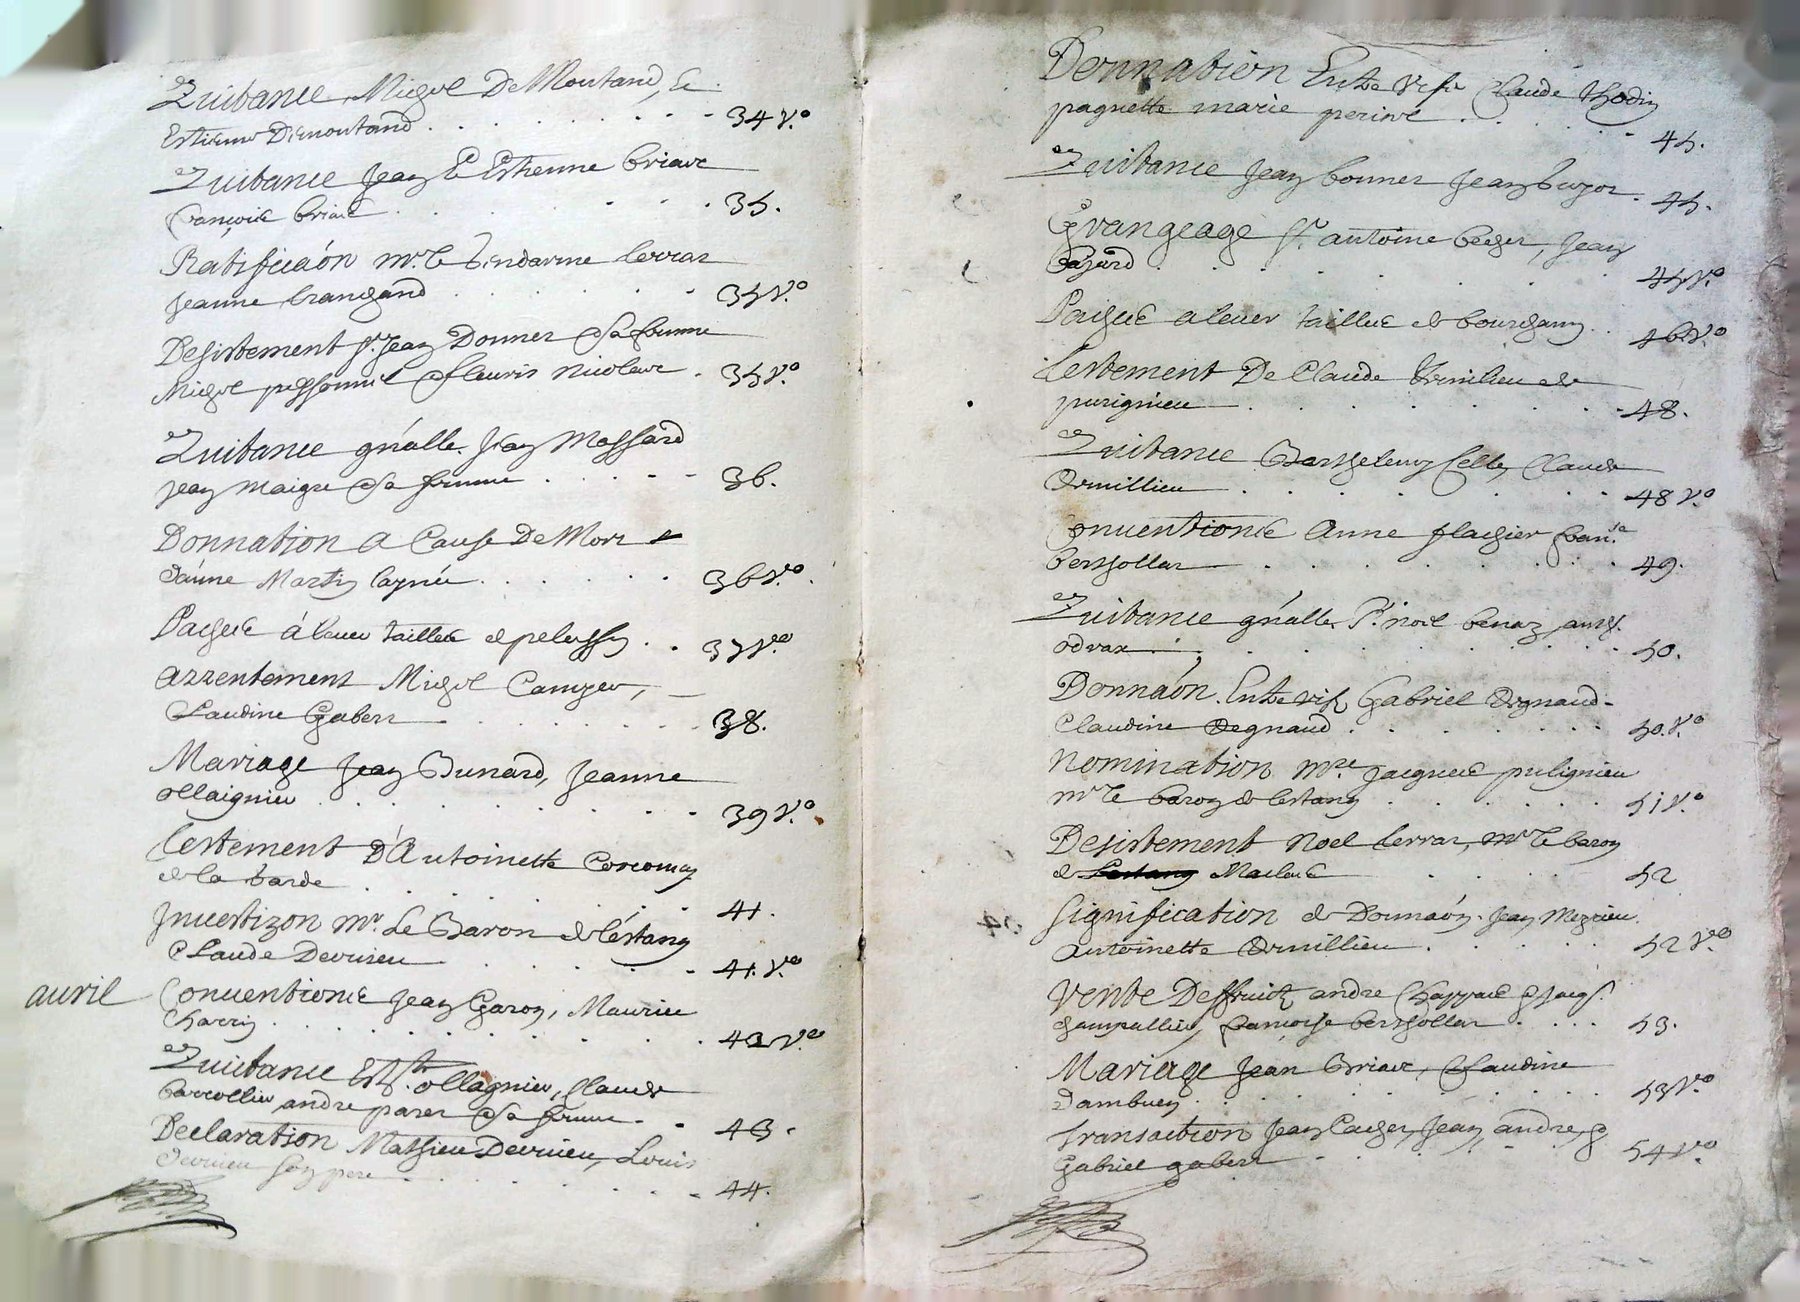 Quitance, Migol De Montand, Et
Estienne Demontand 34 v.o
Quitance Jean Et Estienne briave
francoise briave 35.
Ratiffica'on mr. le gendarme ferrar
Jeanne brangard 35 v.o
Desistement sr. Jean Donner & sa femme
Migol & fleuris nicolave 35 v.o
Quitance gn'alle. Jean Massard
Jean Maigre & sa femme 36.
Donnation a Cause De Mort
d'anne Martin 36 v.o
Paches à lever tailles de pelussin 37 v.o
arrentement Migol Camyer,
Claudine Gabert 38.
Mariage Jean Bunard, Jeanne
ollaignier 39 v.o
Testement D'Antoinette
de la barde 41.
Investizon mr. Le Baron de lestang
Claude Devrieu 41 v.o
avril Conventions Jean Garon, Maurice
Charrin 42 v.o
Quitance Est. ollagnier, Claude
barcollier andre parer & sa femme 43.
Declaration Mathieu Devrieu, Louis
Devrieu son pere 44.
Donnation Entre vifs Claude thodin
paquette marie perine 45.
Quitance Jean bonner Jean 45.
Grangeage sr. antoine beger, Jean
bajard 45 v.o
Paches a lever tailles de bourdam 46 v.o
Testement De Claude
purignieu 48.
Quitance Barthelemy Celle, Claude
Ormillieu 48 v.o
Conventions Anne flachier fran.se
berthollar 49.
Quitance gn'alle. Pr. noel benaz, anth.
odrar 50.
Donna'on Entre vifs Gabriel Degnaud
Claudine Degnaud 50. v.o
Nomination mre. Jacques pulignieu
mr le baron de lestang 51 v.o
Desistement Noel ferrar, mr le baron
de Lestang Maclas 52
Signification de Donna'on Jean Mezrieu
Antoinette Ormillieu 52 v.o
Vente Deffruitz andre Chappas &
Champallier, francoise berthollar 53.
Mariage Jean Briave, Claudine
Dambuen 53 v.o
Transaction Jean Cacher, Jean, andre, &
Gabriel gabert 54 v.o